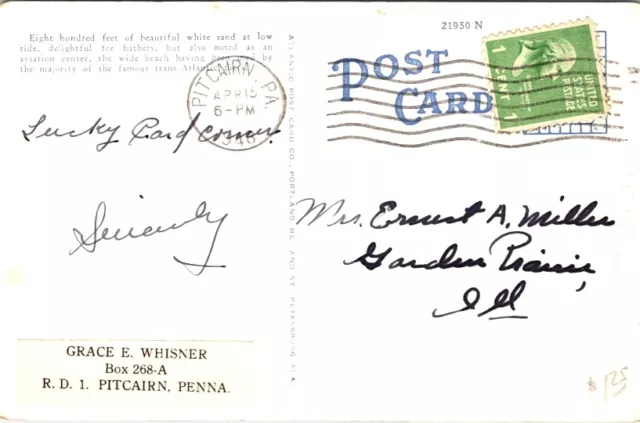 Eight hundred feet of beautiful white sand at low
tide, delightful for bathers, but also noted as an
aviation center, the wide beach having been used by
the majority of the famous trans-Atlantic
21950 N
POST
CARD
PITCAIRN, PA.
APR 15
6-PM
1946
1 CENT 1
UNITED
STATES
POSTAGE
Lucky Card Corner
Sincerely
ATLANTIC POST CARD CO., PORTLAND, ME. AND ST. PETERSBURG, FLA.
Mrs. Ernest A. Miller
Garden Prairie,
Ill
GRACE E. WHISNER
Box 268-A
R. D. 1. PITCAIRN, PENNA.
$1.25